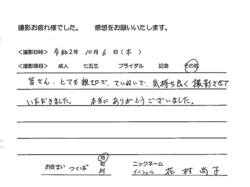 撮影お疲れ様でした。　感想をお願いいたします。
<撮影日時>　令和2年　10月　6日（木）
<撮影項目>　成人　七五三　ブライダル　記念　その他
皆さん、とても親切で、ていねいで、気持ち良く撮影させて
いただきました。　本当にありがとうございました。
お住まい　つくば　市
町
村
ニックネーム
イニシャル　花村 尚子